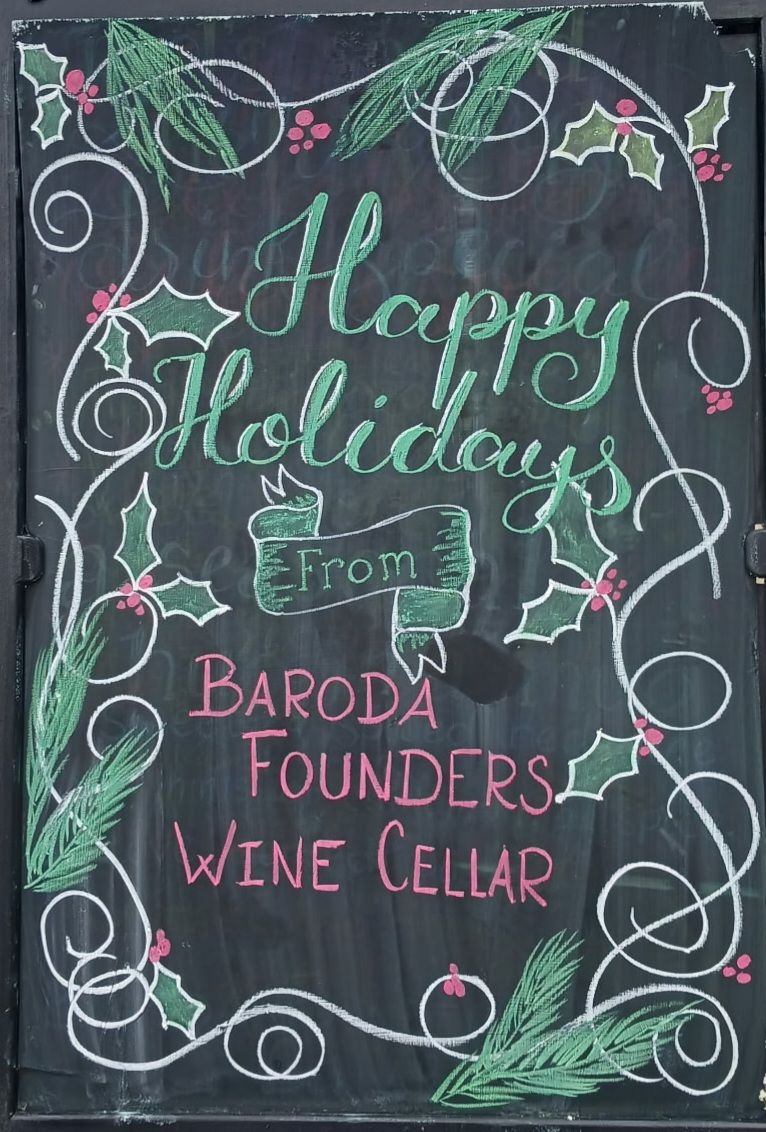 Happy
Holidays
From
BARODA
FOUNDERS
WINE CELLAR